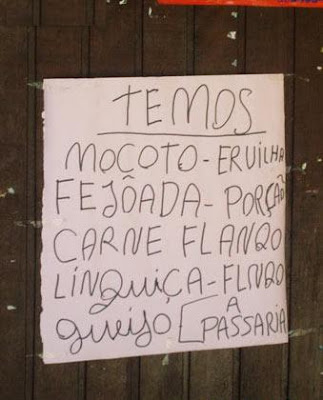 TEMOS
MOCOTO - ERUILHA
FEJÔADA - PORÇÃO
CARNE FLANQO
LINQUIÇA - FLINQO
A
queijo [PASSARIA